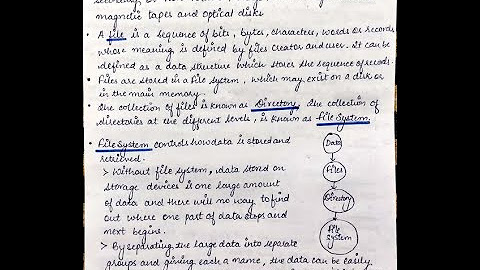 magnetic tapes and optical disks
• A file is a sequence of bits, bytes, characters, words or records
whose meaning is defined by files creator and user. It can be
defined as a data structure which stores the sequence of records.
• Files are stored in a file system, which may exist on a disk or
in the main memory.
• The collection of files is known as Directory, The collection of
directories at the different levels, is known as file System.
• File System controls how data is stored and
retrieved.
> Without file system, data stored on
storage devices is one large amount
of data and there will no way to find
out where one part of data stops and
next begins.
> By separating the large data into separate
groups and giving each a name, the data can be easily
Data
Files
Directory
file
System